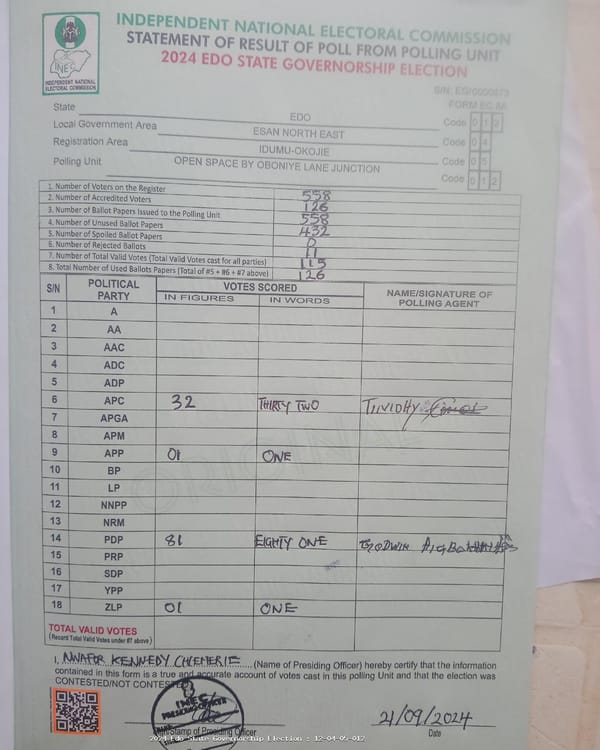 INDEPENDENT NATIONAL ELECTORAL COMMISSION
STATEMENT OF RESULT OF POLL FROM POLLING UNIT
2024 EDO STATE GOVERNORSHIP ELECTION
INEC
INDEPENDENT NATIONAL ELECTORAL COMMISSION
FORM EC 8A
State EDO Code
Local Government Area ESAN NORTH EAST Code 0 4
Registration Area IDUMU-OKOJIE Code 0 5
Polling Unit OPEN SPACE BY OBONIYE LANE JUNCTION Code 0 1 2
1. Number of Voters on the Register 558
2. Number of Accredited Voters 126
3. Number of Ballot Papers Issued to the Polling Unit 558
4. Number of Unused Ballot Papers 432
5. Number of Spoiled Ballot Papers 0
6. Number of Rejected Ballots 11
7. Number of Total Valid Votes (Total Valid Votes cast for all parties) 115
8. Total Number of Used Ballots Papers (Total of #5 + #6 + #7 above) 126
S/N POLITICAL PARTY VOTES SCORED NAME/SIGNATURE OF POLLING AGENT
IN FIGURES IN WORDS
1 A
2 AA
3 AAC
4 ADC
5 ADP
6 APC 32 THIRTY TWO
7 APGA
8 APM
9 APP 01 ONE
10 BP
11 LP
12 NNPP
13 NRM
14 PDP 81 EIGHTY ONE GODWIN
15 PRP
16 SDP
17 YPP
18 ZLP 01 ONE
ORIGINAL
TOTAL VALID VOTES
(Record Total Valid Votes under #7 above)
I, NWAFOR KENNEDY CHIEMERIE (Name of Presiding Officer) hereby certify that the information
contained in this form is a true and accurate account of votes cast in this polling Unit and that the election was
CONTESTED/NOT CONTESTED
INEC
PRESIDING OFFICER
21/09/2024
Stamp of Presiding Officer Date
2024 Edo State Governorship Election : 12-04-05-012